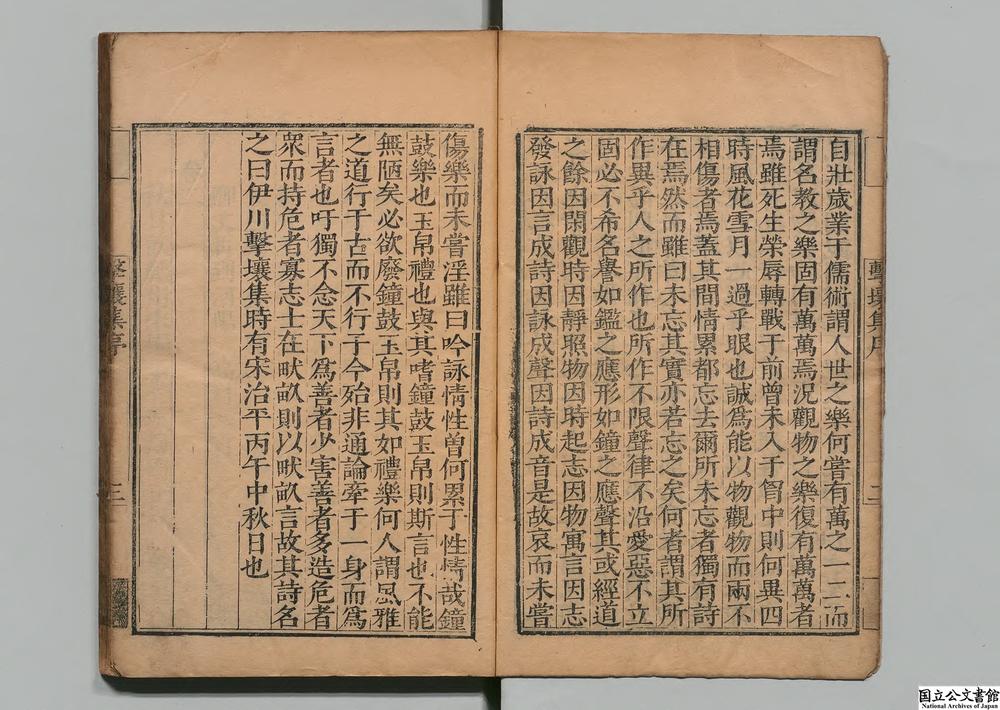 自壯歲業于儒術謂人世之樂何嘗有萬之一二而
謂名教之樂固有萬萬焉況觀物之樂復有萬萬者
焉雖死生榮辱轉戰于前曾未入于胷中則何異四
時風花雪月一過乎眼也誠爲能以物觀物而兩不
相傷者焉蓋其間情累都忘去爾所未忘者獨有詩
在焉然而雖曰未忘其實亦若忘之矣何者謂其所
作異乎人之所作也所作不限聲律不沿愛惡不立
固必不希名譽如鑑之應形如鐘之應聲其或經道
之餘因閑觀時因靜照物因時起志因物寓言因志
發詠因言成詩因詠成聲因詩成音是故哀而未嘗
擊壤集序
二
傷樂而未嘗淫雖曰吟詠情性曽何累于性情哉鐘
鼓樂也玉帛禮也與其嗜鐘鼓玉帛則斯言也不能
無陋矣必欲廢鐘鼓玉帛則其如禮樂何人謂風雅
之道行于古而不行于今始非通論牽于一身而爲
言者也吁獨不念天下爲善者少害善者多造危者
衆而持危者寡志士在畎畝則以畎畝言故其詩名
之曰伊川擊壤集時有宋治平丙午中秋日也
擊壤集序
三
国立公文書館
National Archives of Japan